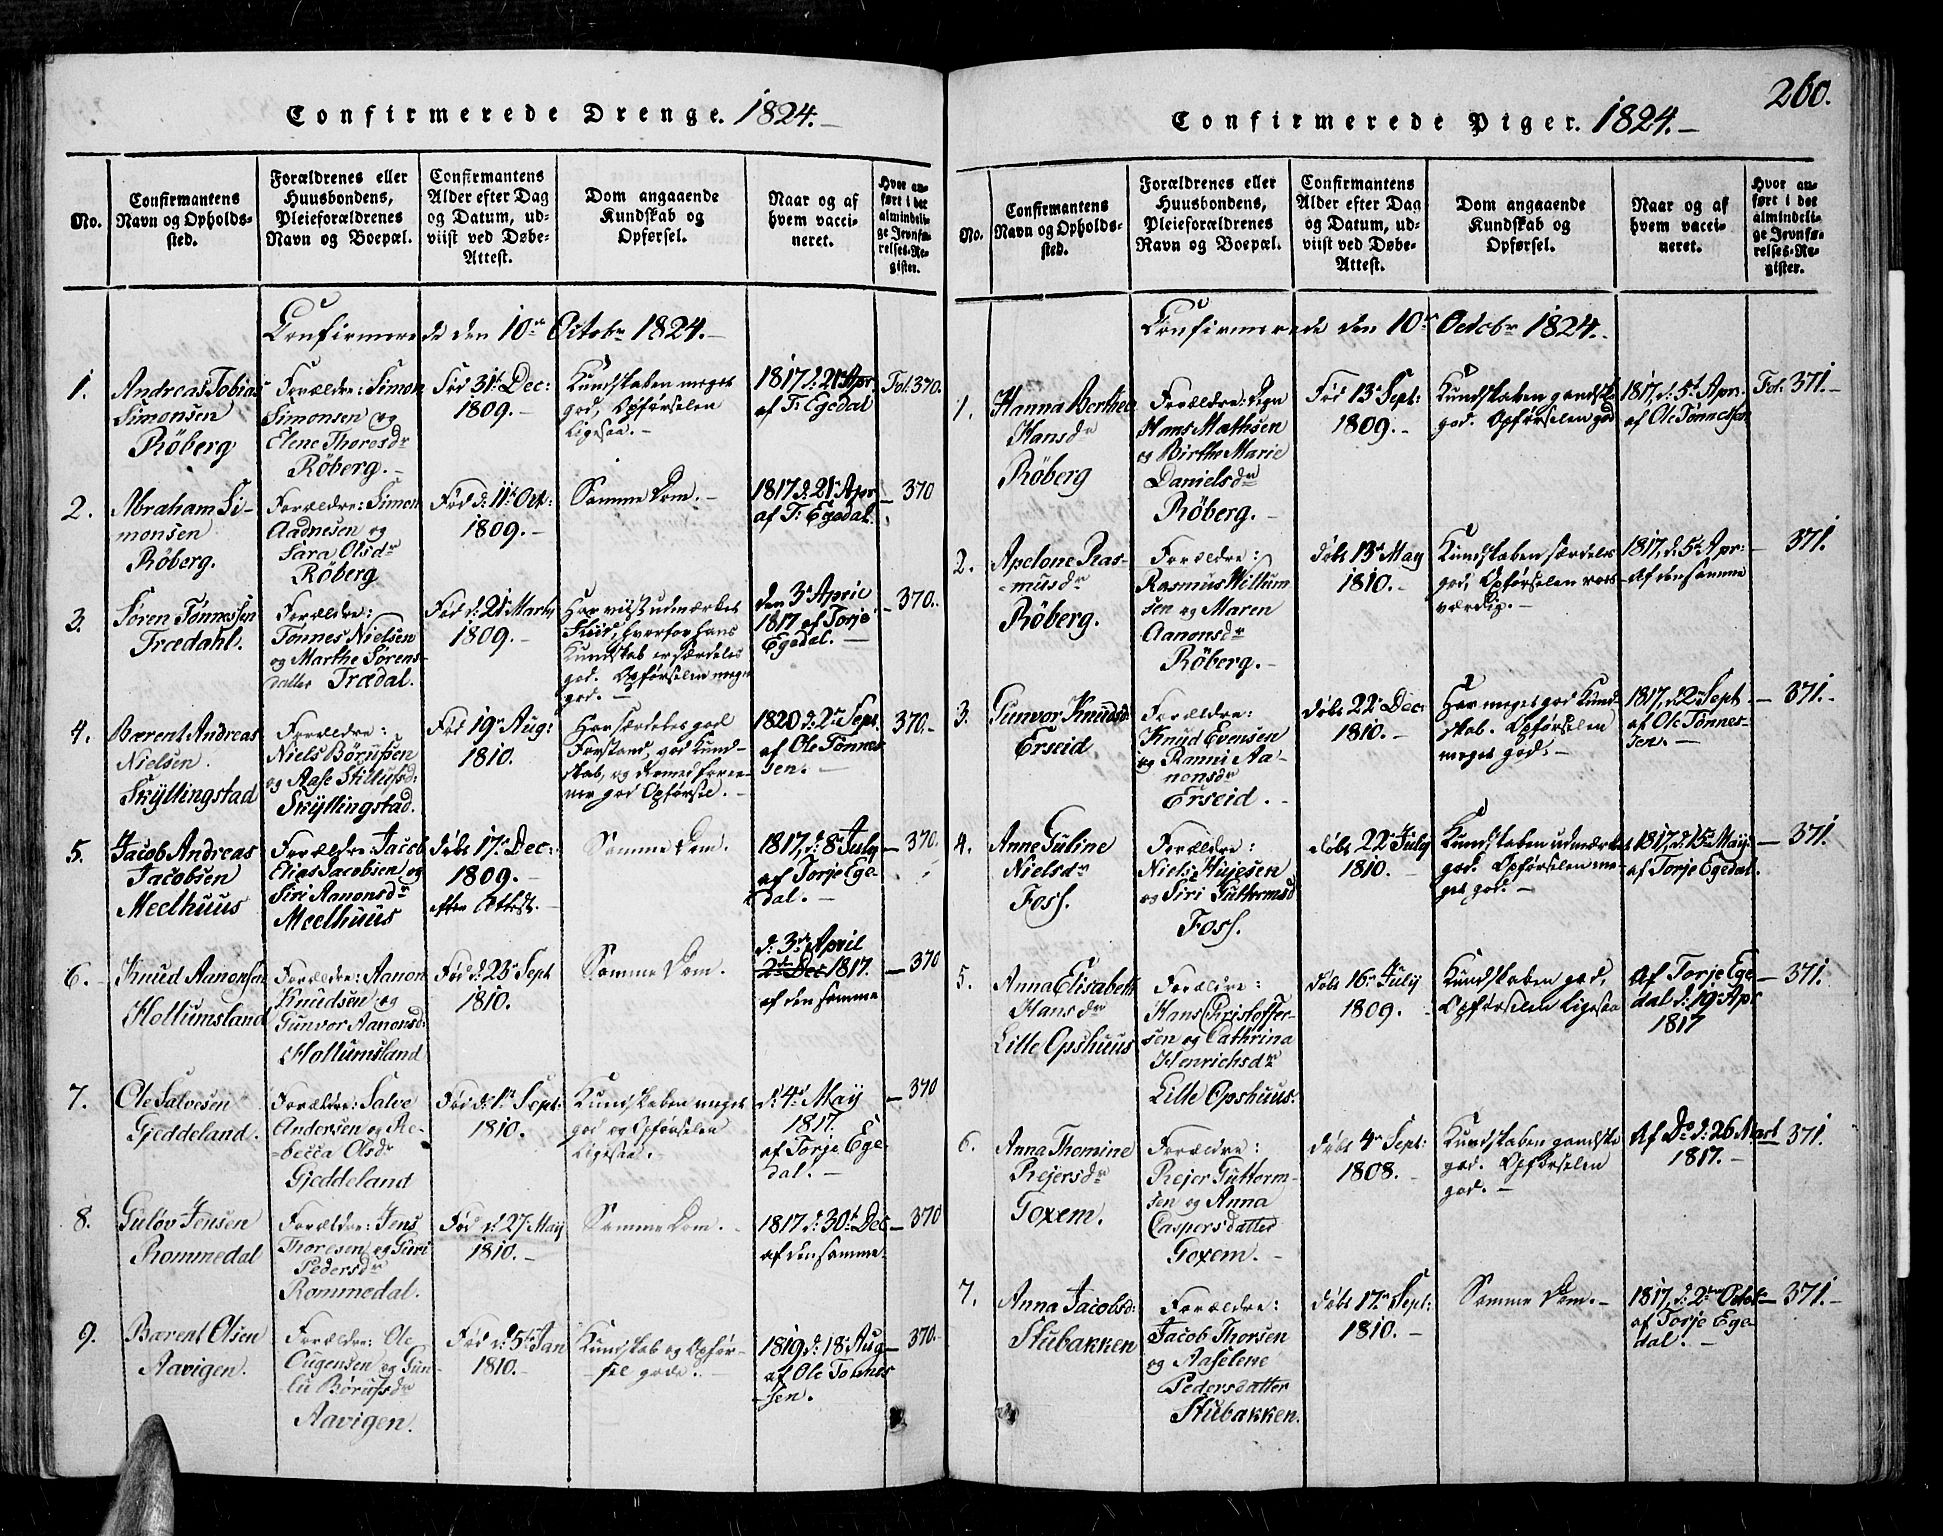 Confirmerede Drenge. 1824.
No.
Confirmantens Navn og Opholdssted.
Forældrenes eller Huusbondens, Pleieforældrenes Navn og Boepæl.
Confirmantens Alder efter Dag og Datum, udviist ved Døbe-Attest.
Dom angaaende Kundskab og Opførsel.
Naar og af hvem vaccineret.
Hvor anført i det almindelige Jevnførelses-Register.
Confirmerede den 10de Octobr 1824.
1.
Andreas Tobias
Simonsen
Röberg
Forældre: Simon
Simonsen og
Elene Thoresdr
Röberg.
Fød 31te Dec:
1809.
Kundskaben meget
god, Opførselen
ligesaa.
1817 d: 21 Apr
af T: Egedal
Fol. 370.
2.
Abraham Si-
monsen
Röberg.
Forældre: Simon
Aadnesen og
Sara Olsdr
Röberg
Fød d: 11te Oct:
1809.
Samme Dom.
1817 d: 21 Apr
af T: Egedal.
370
3.
Søren Tønnessen
Trædahl.
Forældre:
Tønnes Nielsen
og Marthe Sørens-
datter Trædal.
Fød d: 21 Marts
1809.
Har viist udmærket
Fliid, hvorfor hans
Kundskab er særdeles
god. Opførselen meget
god.
den 3de April
1817 af Torje
Egedal.
370.
4.
Bærent Andreas
Nielsen
Skyllingstad
Forældre:
Niels Børufsen
og Aase
Skyllingstad.
Fød 19de Aug:
1810.
Har særdeles god
Forstand, god Kund-
skab, og
god Opførsel.
1820 d: 2den Sept.
af Ole Tønnes-
sen.
370.
5.
Jacob Andreas
Jacobsen
Meelhuus
Forældre: Jacob
Elias Jacobsen og
Siri Aanonsdr
Meelhuus
døbt 17de Dec:
1809.
efter Attest.
Samme Dom.
1817, d: 8de July
af Torje Ege-
dal.
370.
6.
Knud Aanonsen
Hollumsland
Forældre: Aanon
Knudsen og
Gunvor Aanonsd:
Hollumsland
Fød d: 23de Sept
1810.
Samme Dom.
d: 3de April
2de Dec 1817.
af den samme
370
7.
Ole Salvesen
Gjeddeland.
Forældre: Salve
Andersen og Re-
becca Olsdr
Gjeddeland
Fød d: 1ste Sept:
1810.
Kundskaben meget
god og Opførselen
ligesaa.
d: 4de May
1817.
af Torje Ege-
dal.
370
8.
Guløv Jensen
Rommedal
Forældre: Jens
Thoresen og Guri
Pedersdr
Rommedal.
Fød d: 27de May
1810.
Samme Dom.
1817 d: 30te Dec
af den samme
370
9.
Barent Olsen
Aavigen.
Forældre: Ole
Eugensen og Gun-
Børufsdr
Aavigen.
Fød d: 5te Jan
1810.
Kundskab og Opfør-
sel gode.
1819 d: 18de Aug
af Ole Tønnes-
sen.
370.
260.
Confirmerede Piger. 1824.
No.
Confirmantens Navn og Opholdssted.
Forældrenes eller Huusbondens, Pleieforældrenes Navn og Boepæl.
Confirmantens Alder efter Dag og Datum, udviist ved Døbe-Attest.
Dom angaaende Kundskab og Opførsel.
Naar og af hvem vaccineret.
Hvor anført i det almindelige Jevnførelses-Register.
Confirmerede den 10de Octobr 1824.
1.
Hanna Berthea
Hansdr
Röberg
Forældre:
Hans Mathsen
og Birthe Marie
Danielsdr
Röberg.
Fød 13de Sept:
1809.
Kundskaben gandske
god. Opførselen god
1817, d: 5te Apr.
af Ole Tønnessen
Fol. 371.
2.
Apelone Ras-
musdr
Röberg.
Forældre:
Rasmus Villum-
sen og Maren
Aanonsdr
Röberg.
døbt 13de May
1810.
Kundskaben særdeles
god, Opførselen roes-
værdig.
1817, d: 5te Apr:
af den samme
371.
3.
Gunvor Knudsd:
Erseid
Forældre:
Knud Evensen
og Ranni Aa-
nonsdr
Erseid.
døbt 22de Dec:
1810.
Har meget god Kund-
skab. Opførselen
meget god.
1817, 22 Sept
af Ole Tønnes-
sen.
371.
4.
Anne Guline
Nielsdr
Foss.
Forældre:
Niels
og Siri Guttormsd
Foss.
døbt 22de July
1810.
Kundskaben udmærket
god. Opførselen me-
get god.
1817, d: 15de May
af Torje Egedal.
371.
5.
Anna Elisabeth
Hansdr
Lille Opshuus
Forældre:
Hans Christoffer-
sen og Cathrina
Henrichsdr
Lille Opshuus.
døbt 16de July
1809.
Kundskaben god,
Opførselen ligesaa
Af Torje Ege-
dal d: 19de Apr
1817
371.
6.
Anna Thomine
Rejersdr
Goxem.
Forældre:
Rejer Guttorm-
sen og Anna
Caspersdatter
Goxem.
døbt 4de Sept:
1808.
Kundskaben gandske
god. Opførselen
god.
Af Do d: 26 Mart
1817.
371.
7.
Anna Jacobsd:
Stubakken
Forældre:
Jacob Thorsen
og Aaselene
Pedersdatter
Stubakken.
døbt 17de Sept:
1810.
Samme Dom.
1817, d: 2den Octob.
af Torje Ege-
dal.
371.